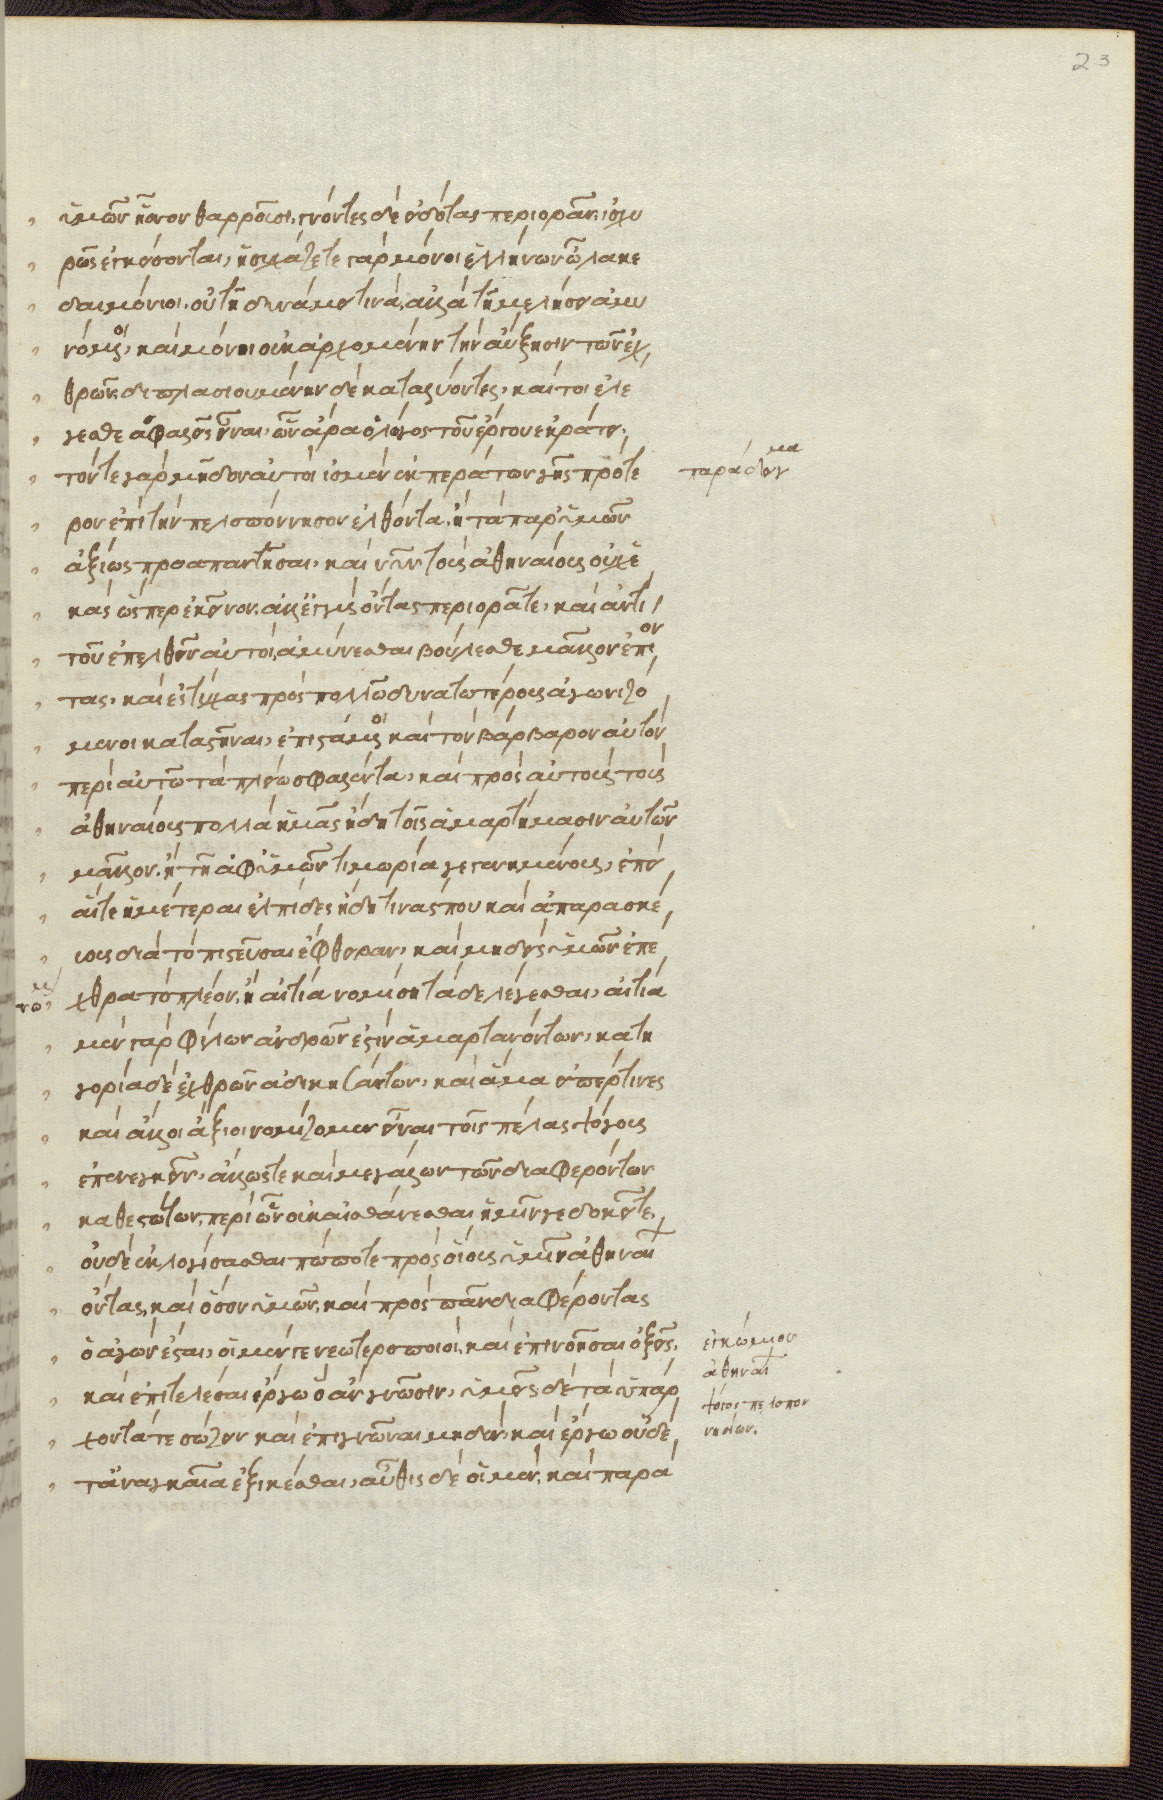 23
ὑμῶν ἧσσον θαρροῦσι, γνόντες δὲ εἰδότας περιορᾶν, ἰσχυ
ρῶς ἐγκείσονται, ἡσυχάζετε γὰρ μόνοι ἑλλήνων ὦ λακε
δαιμόνιοι, οὐ τῇ δυνάμει τινά, ἀλλὰ τῇ μελλήσει ἀμυ
νόμενοι, καὶ μόνοι οὐκ ἀρχομένην τὴν αὔξησιν τῶν ἐχ
θρῶν, διπλασιουμένην δὲ καταλύοντες, καίτοι ἐλέ
γεσθε ἀσφαλεῖς εἶναι, ὧν ἄρα ὁ λόγος τοῦ ἔργου ἐκράτει,
τόν τε γὰρ μῆδον αὐτοὶ ἴσμεν ἐκ περάτων γῆς πρότε
παράδειγμα
ρον ἐπὶ τὴν πελοπόννησον ἐλθόντα, ἢ τὰ παρ' ὑμῶν
ἀξίως προαπαντῆσαι, καὶ νῦν τοὺς ἀθηναίους οὐχ ἑ
κὰς ὥσπερ ἐκεῖνον, ἀλλ' ἐγγὺς ὄντας περιορᾶτε, καὶ ἀντὶ
τοῦ ἐπελθεῖν αὐτοὶ, ἀμύνεσθαι βούλεσθε μᾶλλον ἐπιόν
τας, καὶ ἐς τύχας πρὸς πολλῶ δυνατωτέρους ἀγωνιζό
μενοι καταστῆναι, ἐπιστάμενοι καὶ τὸν βάρβαρον αὐτὸν
περὶ αὑτῶ τὰ πλείω σφαλέντα, καὶ πρὸς αὐτοὺς τοὺς
ἀθηναίους πολλὰ ἡμᾶς ἤδη τοῖς ἁμαρτήμασιν αὐτῶν
μᾶλλον, ἢ τῇ ἀφ' ὑμῶν τιμωρία γεγενημένους, ἐπεὶ
αἵ τε ὑμέτεραι ἐλπίδες ἤδη τινάς που καὶ ἀπαρασκεύ
ους διὰ τὸ πιστεῦσαι ἔφθειραν, καὶ μηδεὶς ὑμῶν ἐπ' ἔ
χθρα τὸ πλέον, ἢ αἰτία νομίση τάδε λέγεσθαι, αἰτία
μὲν γὰρ φίλων ἀνδρῶν ἐστὶν ἁμαρτανόντων, κατη
γορία δὲ ἐχθρῶν ἀδικησάντων, καὶ ἅμα εἴπερ τινες
καὶ ἄλλοι ἄξιοι νομίζομεν εἶναι τοῖς πέλας ψόγους
ἐπενεγκεῖν, ἄλλως τε καὶ μεγάλων τῶν διαφερόντων
καθεστώτων, περὶ ὧν οὐκ αἰσθάνεσθαι ἡμῖν γε δοκεῖτε,
οὐδὲ ἐκλογίσασθαι πώποτε πρὸς οἵους ὑμῖν ἀθηναίους
ὄντας, καὶ ὅσον ὑμῶν, καὶ πρὸς πᾶν διαφέροντας
ὁ ἀγὼν ἔσται, οἱ μέν γε νεωτεροποιοὶ, καὶ ἐπινοῆσαι ὀξεῖς,
ἐγκώμιον
ἀθηναίων
ψόγος πελοπον
νησίων.
καὶ ἐπιτελέσαι ἔργω ὃ ἂν γνῶσιν, ὑμεῖς δὲ τὰ ὑπάρ
χοντά τε σώζειν καὶ ἐπιγνῶναι μηδὲν, καὶ ἔργω οὐδὲ
τἀναγκαῖα ἐξικέσθαι, αὖθις δὲ οἱ μὲν, καὶ παρὰ